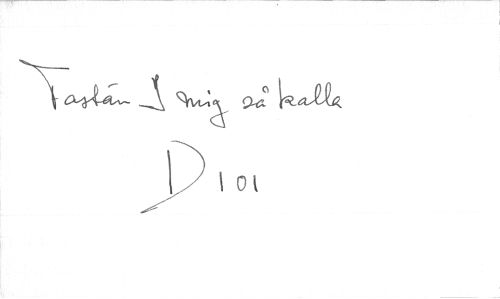 Fastän I mig så kalla
D 101